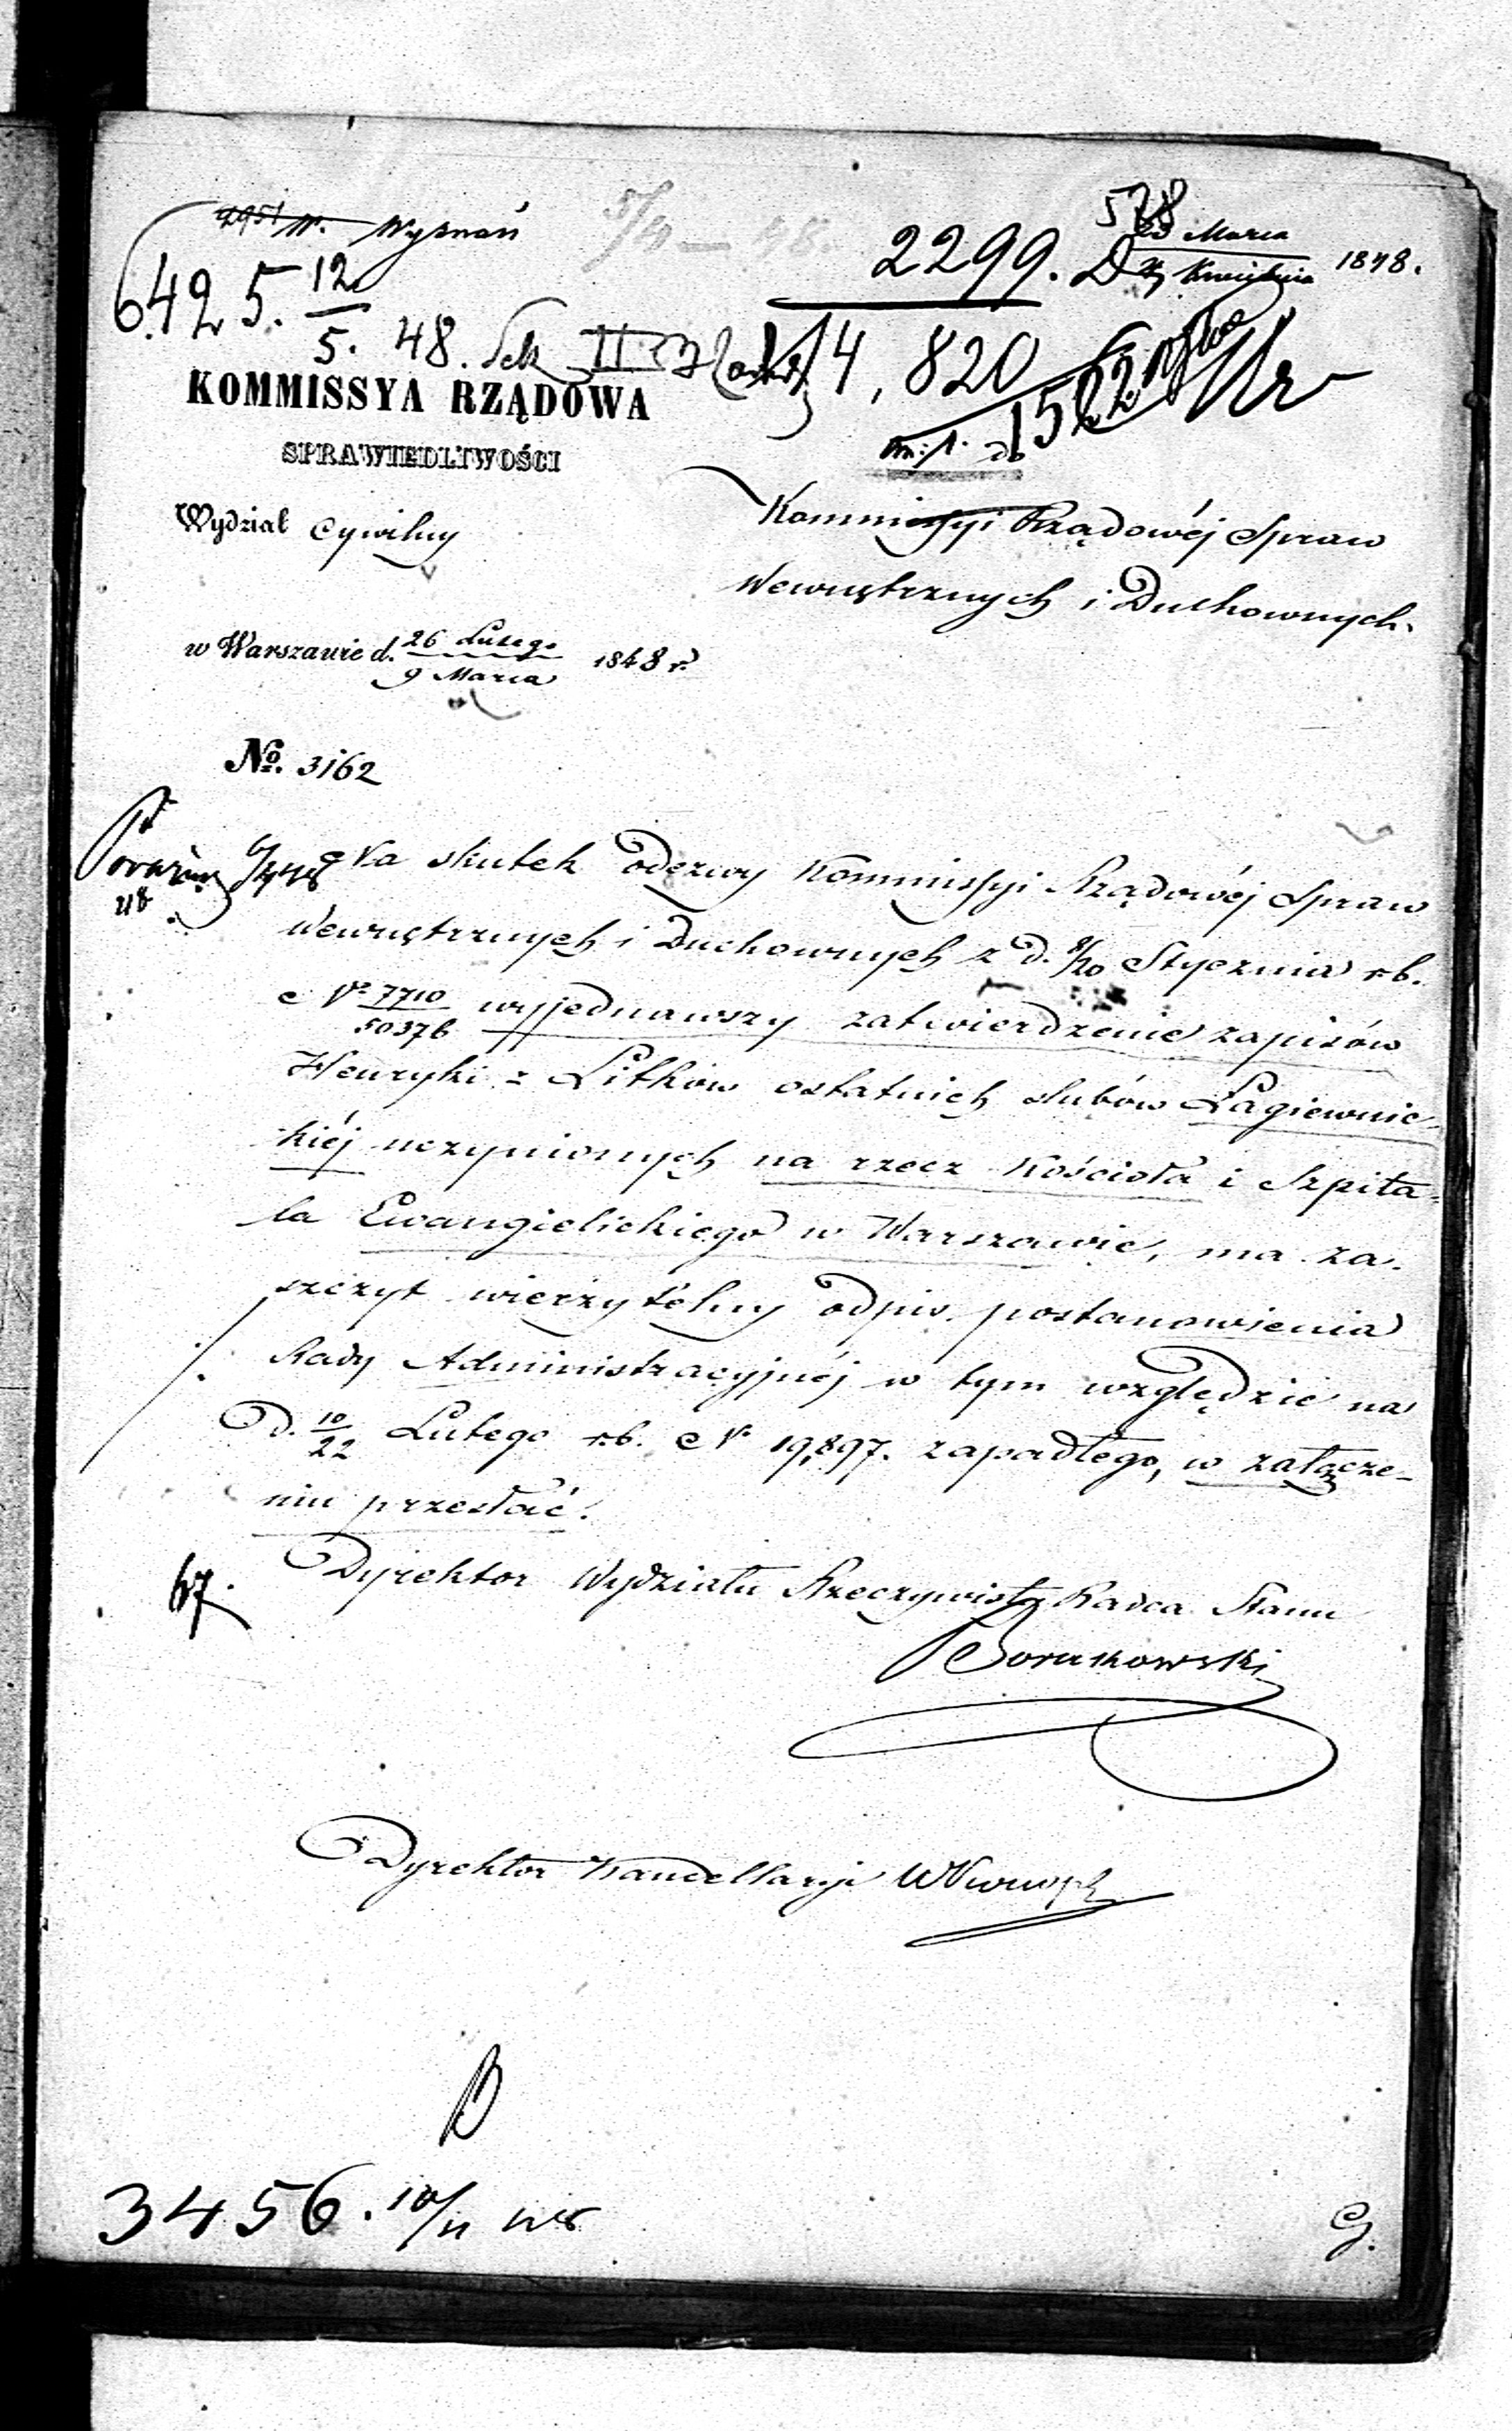 W. Wyznań
2299. D 23 Marca / Kwietnia 1848.
6425. 12/5. 48.
14,820
KOMMISSYA RZĄDOWA
SPRAWIEDLIWOŚCI
Wydział Cywilny
Kommissyi Rządowéj Spraw
Wewnętrznych i Duchownych.
w Warszawie d. 26 Lutego / 9 Marca 1848 r.
No. 3162
Na skutek Odezwy Kommissyi Rządowéj Spraw
Wewnętrznych i Duchownych z d. 8/20 Stycznia r.b.
No 7710/50376 wyjednawszy zatwierdzenie zapisów
Henryki z Litków ostatnich ślubów Łagiewnic-
kiéj uczynionych na rzecz Kościoła i Szpita-
la Ewangielickiego w Warszawie, ma za-
szczyt wierzytelny odpis postanowienia
Rady Administracyjnéj w tym względzie na
D. 10/22 Lutego r.b. N 19,897. zapadłego, w załącze-
niu przesłać.
67.
Dyrektor Wydziału Rzeczywisty Radca Stanu
Dyrektor Kancellaryi
3456. 10/11